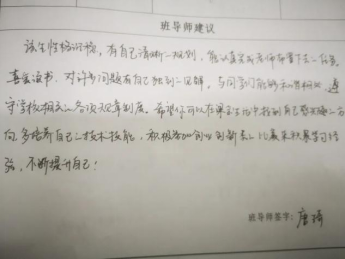 班导师建议
该生性格沉稳,有自己清晰的规划,能认真完成老师布置下去的任务。
喜爱读书,对许多问题有自己独到的见解,与同学们能够和谐相处,遵
守学校相关的各项规章制度。希望你可以在课余生活中找到自己感兴趣的方
向,多培养自己的技术技能,积极参加创业创新类的比赛来积累学习经
验,不断提升自己!
班导师签字:唐琦